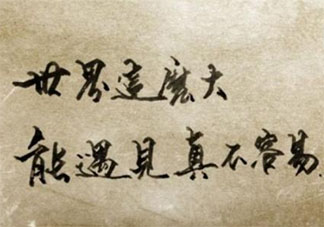 世界這麼大
能遇見真不容易